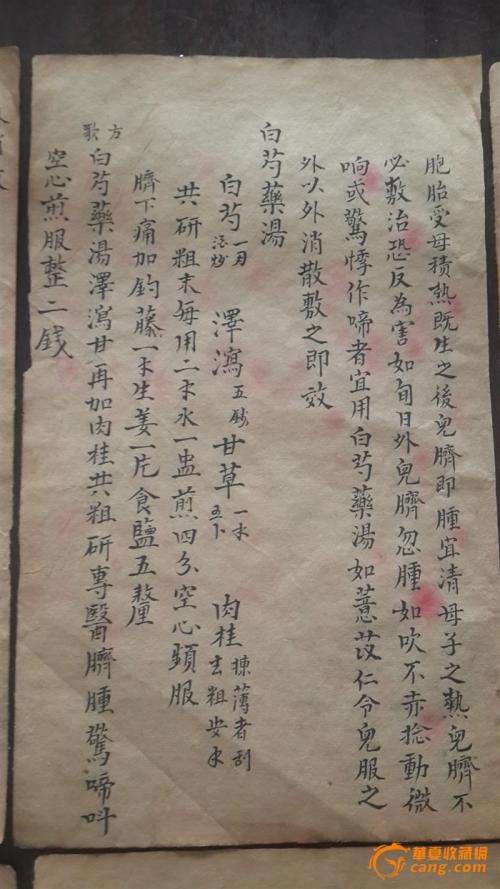 胞胎受母積熱既生之後兒臍即腫宜清母子之熱兒臍不
必敷治恐反為害如旬日外兒臍忽腫如吹不赤捻動微
响或驚悸作啼者宜用白芍藥湯如薏苡仁令兒服之
外以外消散敷之即效
白芍藥湯
白芍 一刃 酒炒 澤瀉 五錢 甘草 一錢 五卜 肉桂 揀薄者刮去粗皮
共研粗末每用二錢水一盅煎四分空心頻服
臍下痛加鈎藤一錢生姜一片食鹽五釐
方歌
白芍藥湯澤瀉甘再加肉桂共粗研專醫臍腫驚啼呌
空心煎服整二錢
華夏收藏網
cang.com